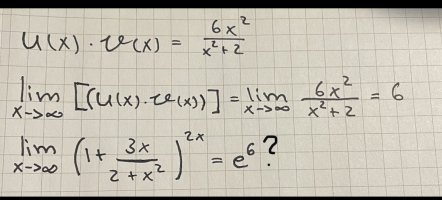 u(x) · v(x) = 6x²/(x²+2)
lim x->∞ [(u(x)·v(x))] = lim x->∞ 6x²/(x²+2) = 6
lim x->∞ (1 + 3x/(2+x²))^(2x) = e⁶?